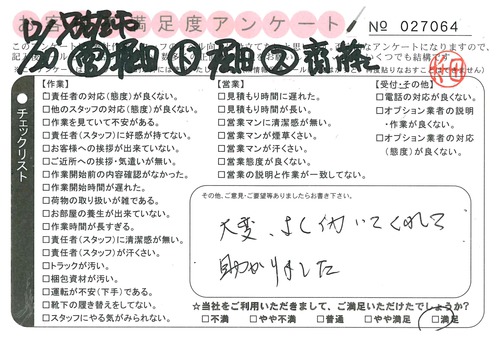 お客様満足度アンケート
No 027064
12/30
堀田
堀田
齋藤
【作業】
□責任者の対応(態度)が良くない。
□他のスタッフの対応(態度)が良くない。
□作業を見ていて不安がある。
□責任者(スタッフ)に好感が持てない。
□お客様への挨拶が出来ていない。
□ご近所への挨拶・気遣いが無い。
□作業開始前の内容確認がなかった。
□作業開始時間が遅れた。
□荷物の取り扱いが雑である。
□お部屋の養生が出来ていない。
□作業時間が長すぎる。
□責任者(スタッフ)に清潔感が無い。
□責任者(スタッフ)が汗くさい。
□トラックが汚い。
□梱包資材が汚い。
□運転が不安(下手)である。
□靴下の履き替えをしてない。
□スタッフにやる気がみられない。
チェックリスト
【営業】
□見積もり時間に遅れた。
□見積もり時間が長い。
□営業マンに清潔感が無い。
□営業マンが煙草くさい。
□営業マンが汗くさい。
□営業態度が良くない。
□営業の説明と作業が一致してない。
【受付・その他】
□電話の対応が良くない。
□オプション業者の説明
・作業が良くない。
□オプション業者の対応
(態度)が良くない。
その他、ご意見・ご要望等ありましたらお書き下さい。
大変、よく付いてくれて
助かりました
☆当社をご利用いただきまして、ご満足いただけたでしょうか?
□不満 □やや不満 □普通 □やや満足 □満足